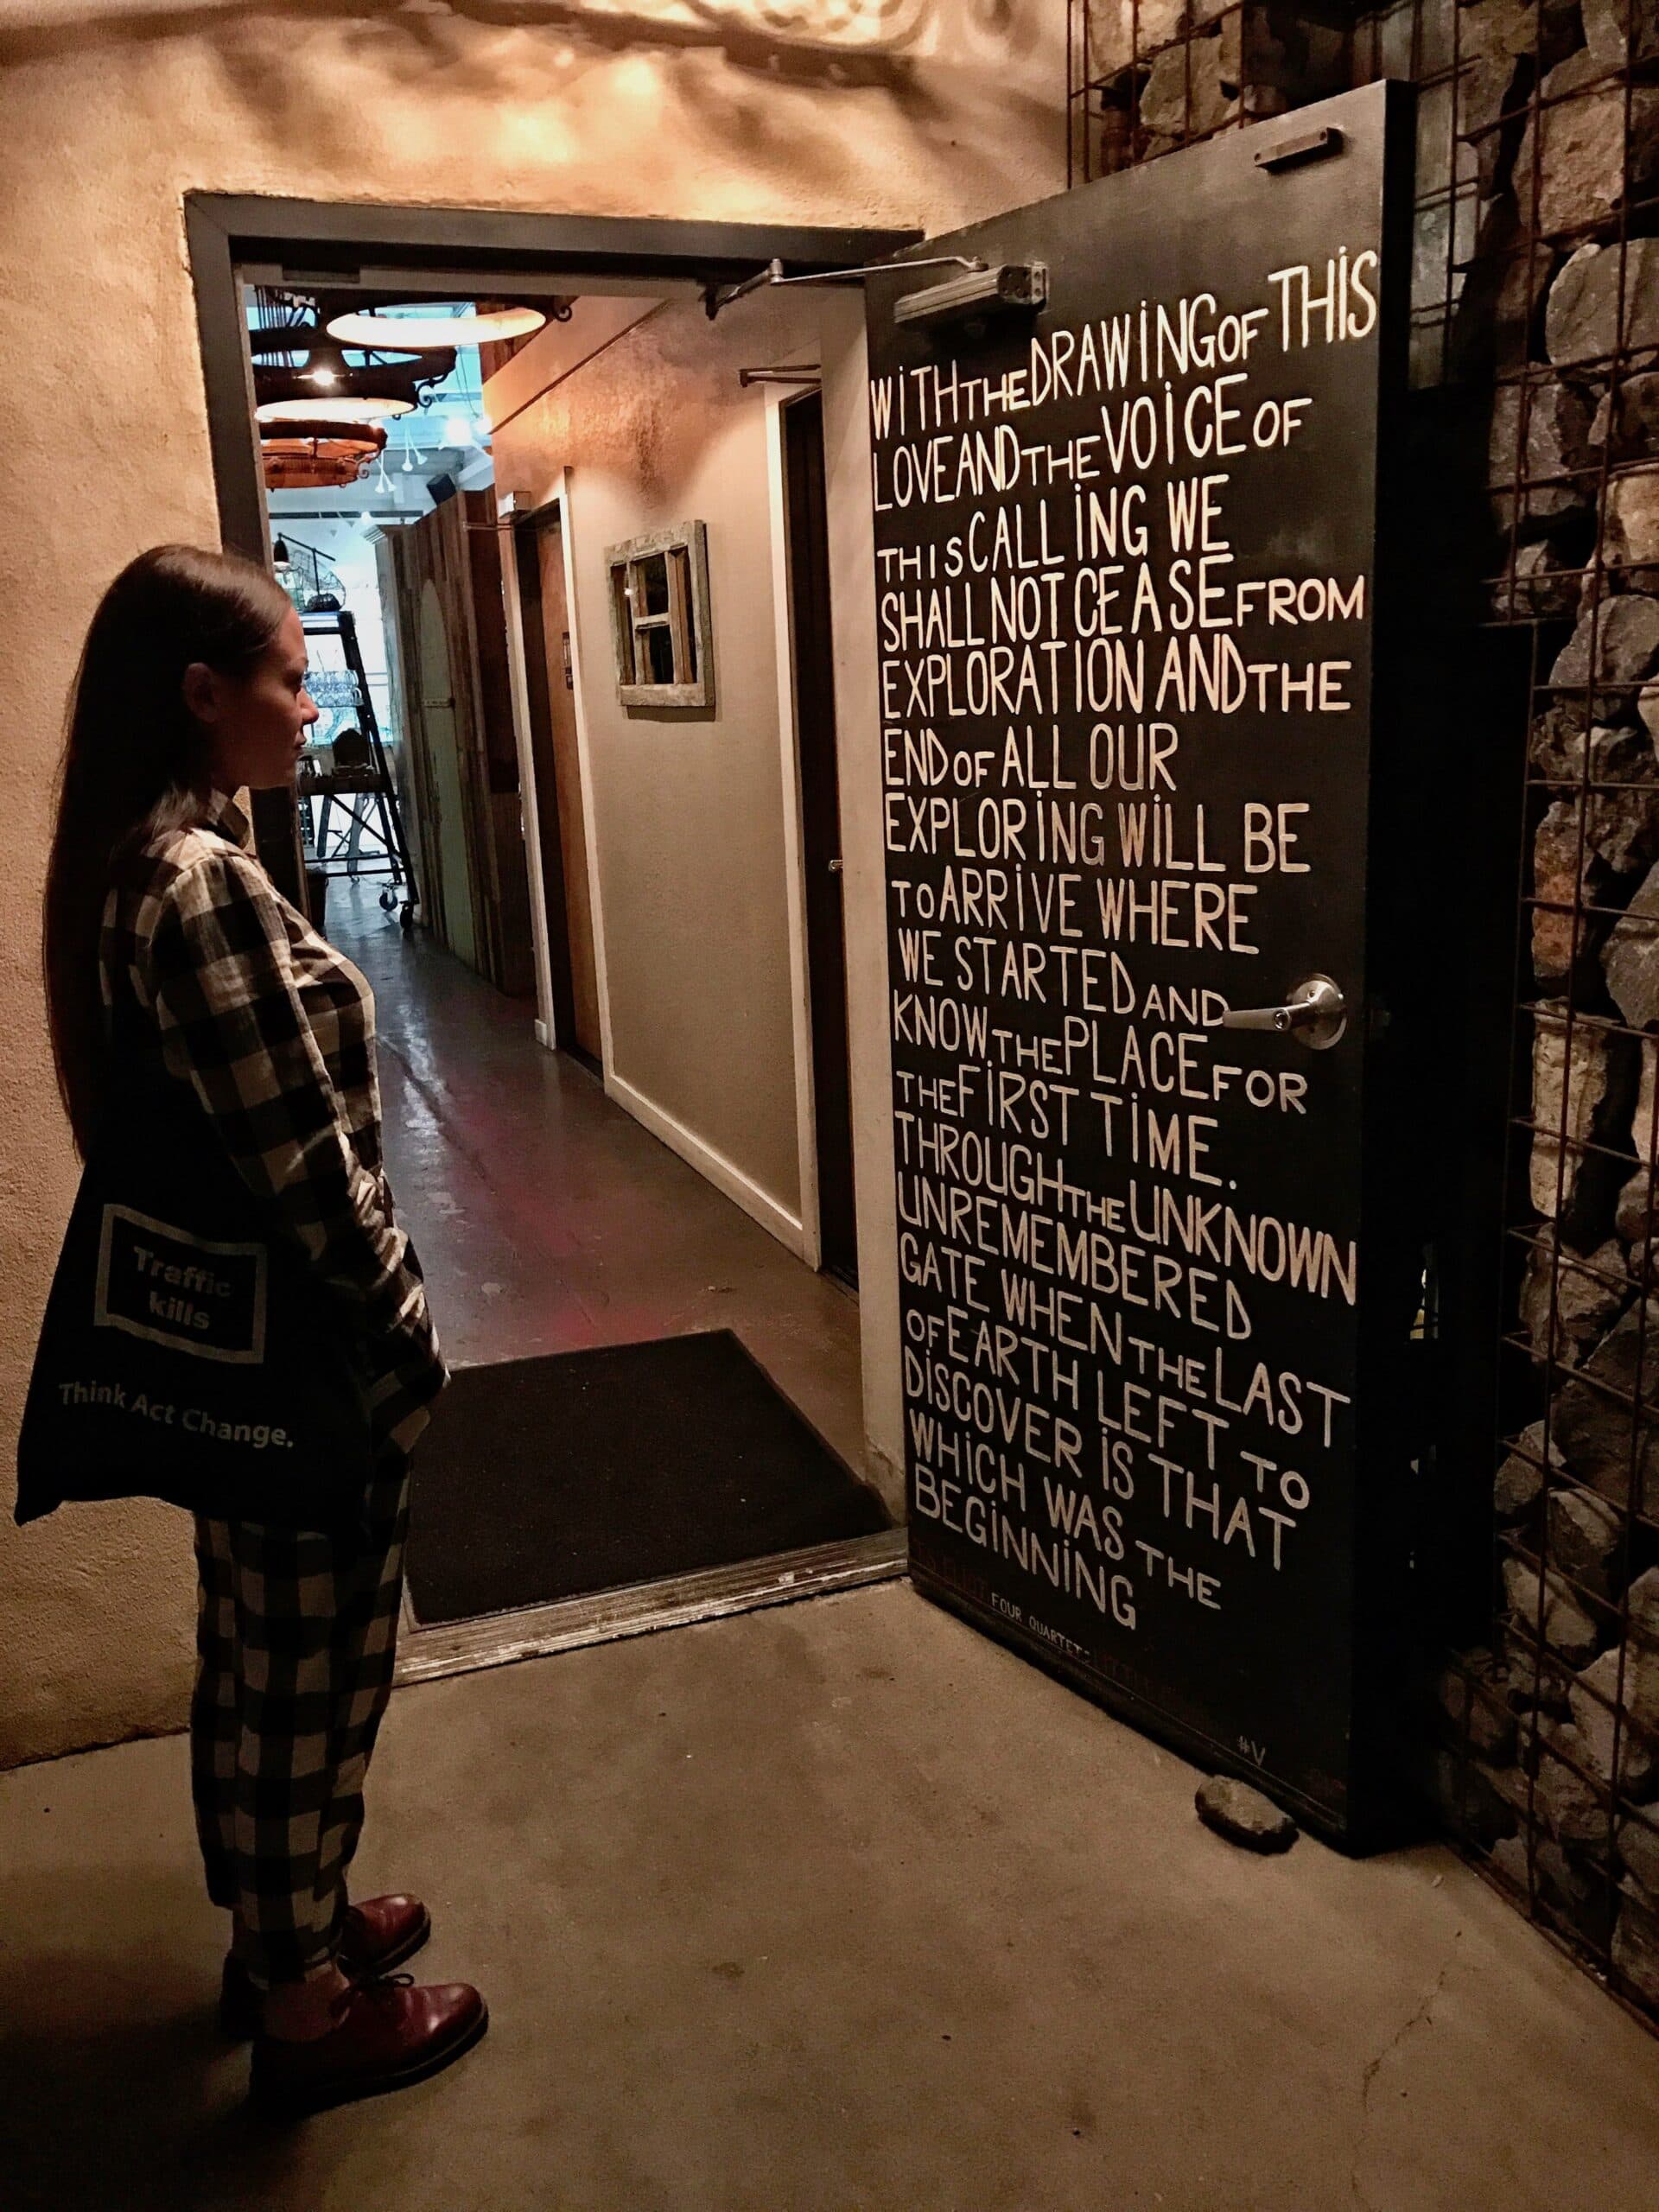 WITH THE DRAWING OF THIS
LOVE AND THE VOICE OF
THIS CALLING WE
SHALL NOT CEASE FROM
EXPLORATION AND THE
END OF ALL OUR
EXPLORING WILL BE
TO ARRIVE WHERE
WE STARTED AND
KNOW THE PLACE FOR
THE FIRST TIME.
THROUGH THE UNKNOWN
UNREMEMBERED
GATE WHEN THE LAST
OF EARTH LEFT TO
DISCOVER IS THAT
WHICH WAS THE
BEGINNING
FOUR QUARTETS
#V
Traffic
kills
Think Act Change.